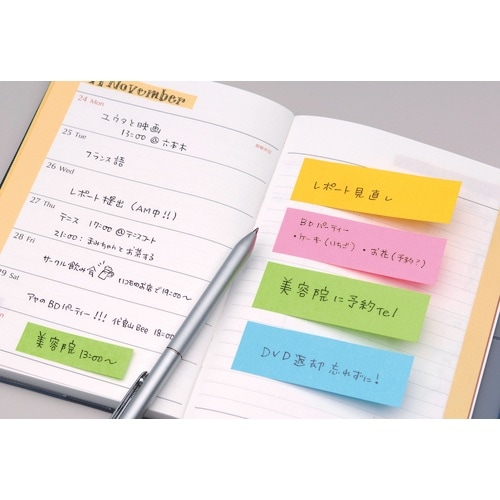 11 November
24 Mon
ユウタと映画
13:00 @ 六本木
25 Tue
フランス語
26 Wed
レポート提出 (AM中!!)
27 Thu
テニス 17:00 @テニスコート
21:00: まみちゃんとお茶する
28 Fri
サークル飲み会 いつものお店で19:00〜
29 Sat
アヤのBDパーティー!!! 代官山Bee 18:00
美容院 13:00〜
レポート見直し
BDパーティー
・ケーキ(いちご) ・お花(予約?)
美容院に予約Tel
DVD返却 忘れずに!